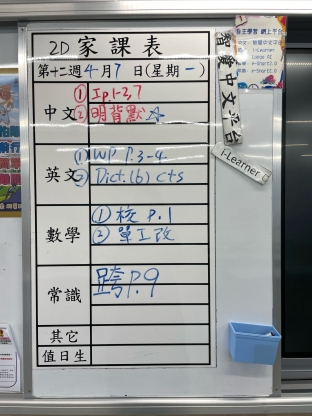 2D 家課表
第十二週 4月7日(星期一)
中文
① Ip.1-2,7
② 明背默☆
英文
① WP P.3-4
② Dict.(6) cts
數學
① 核 P.1
② 單工改
常識
跨P.9
其它
值日生
智愛中文平台
i-Learner
自主學習 網上平台